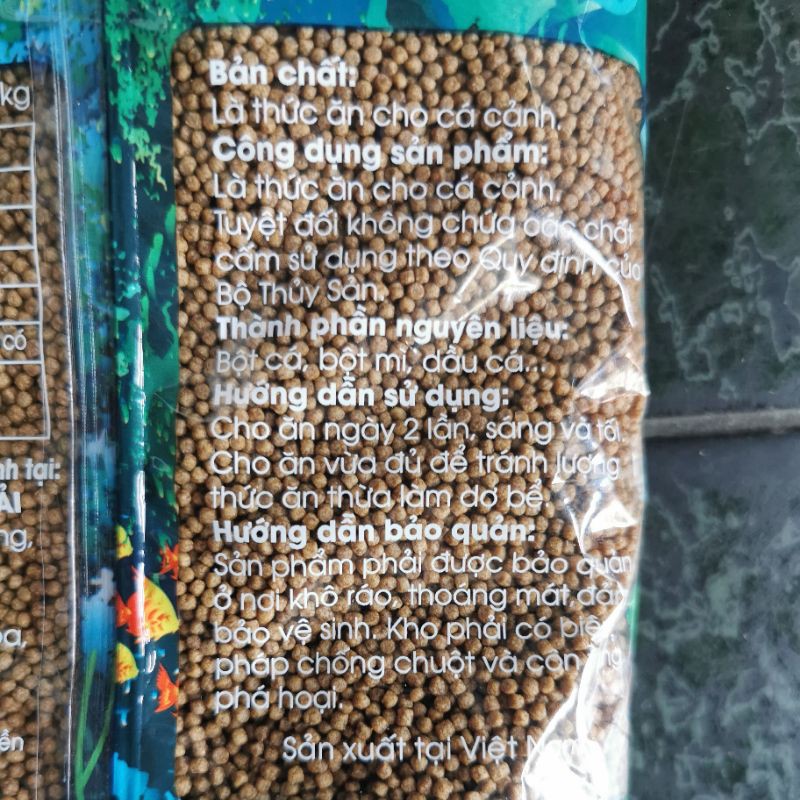 kg
có
nh tại:
ẢI
ng,
oa,
ền
Bản chất:
Là thức ăn cho cá cảnh.
Công dụng sản phẩm:
Là thức ăn cho cá cảnh.
Tuyệt đối không chứa các chất
cấm sử dụng theo Quy định của
Bộ Thủy Sản.
Thành phần nguyên liệu:
Bột cá, bột mì, dầu cá...
Hướng dẫn sử dụng:
Cho ăn ngày 2 lần, sáng và tối.
Cho ăn vừa đủ để tránh lượng
thức ăn thừa làm dơ bể.
Hướng dẫn bảo quản:
Sản phẩm phải được bảo quản
ở nơi khô ráo, thoáng mát, đảm
bảo vệ sinh. Kho phải có biện
pháp chống chuột và côn trùng
phá hoại.
Sản xuất tại Việt Nam